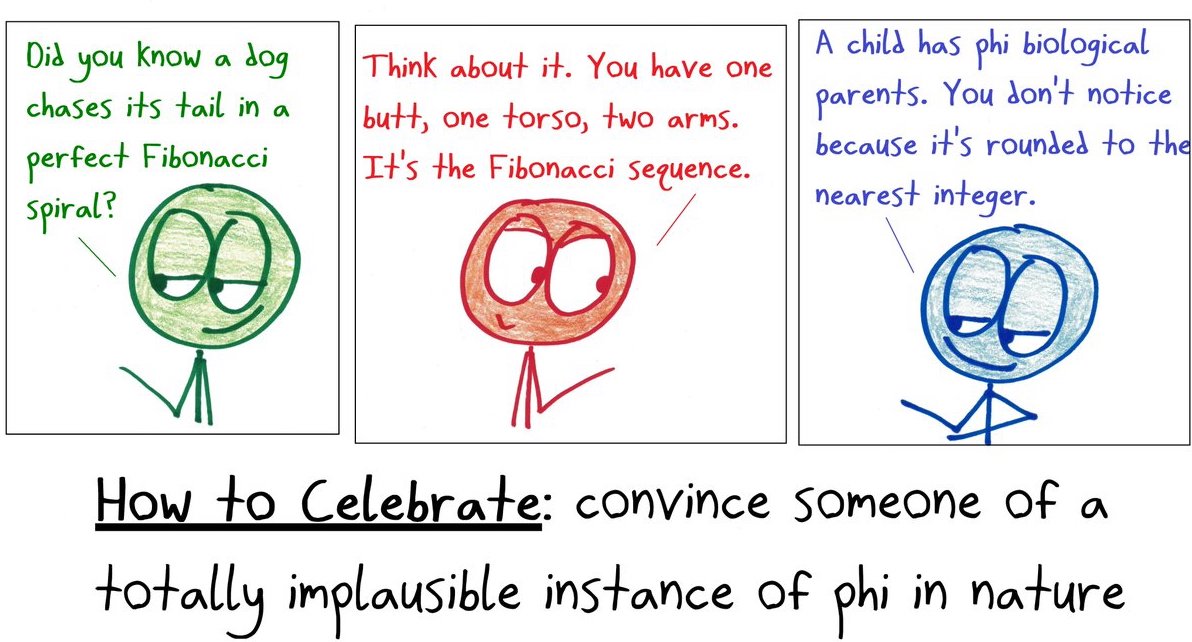 Did you know a dog
chases its tail in a
perfect Fibonacci
spiral?
Think about it. You have one
butt, one torso, two arms.
It's the Fibonacci sequence.
A child has phi biological
parents. You don't notice
because it's rounded to the
nearest integer.
How to Celebrate: convince someone of a
totally implausible instance of phi in nature